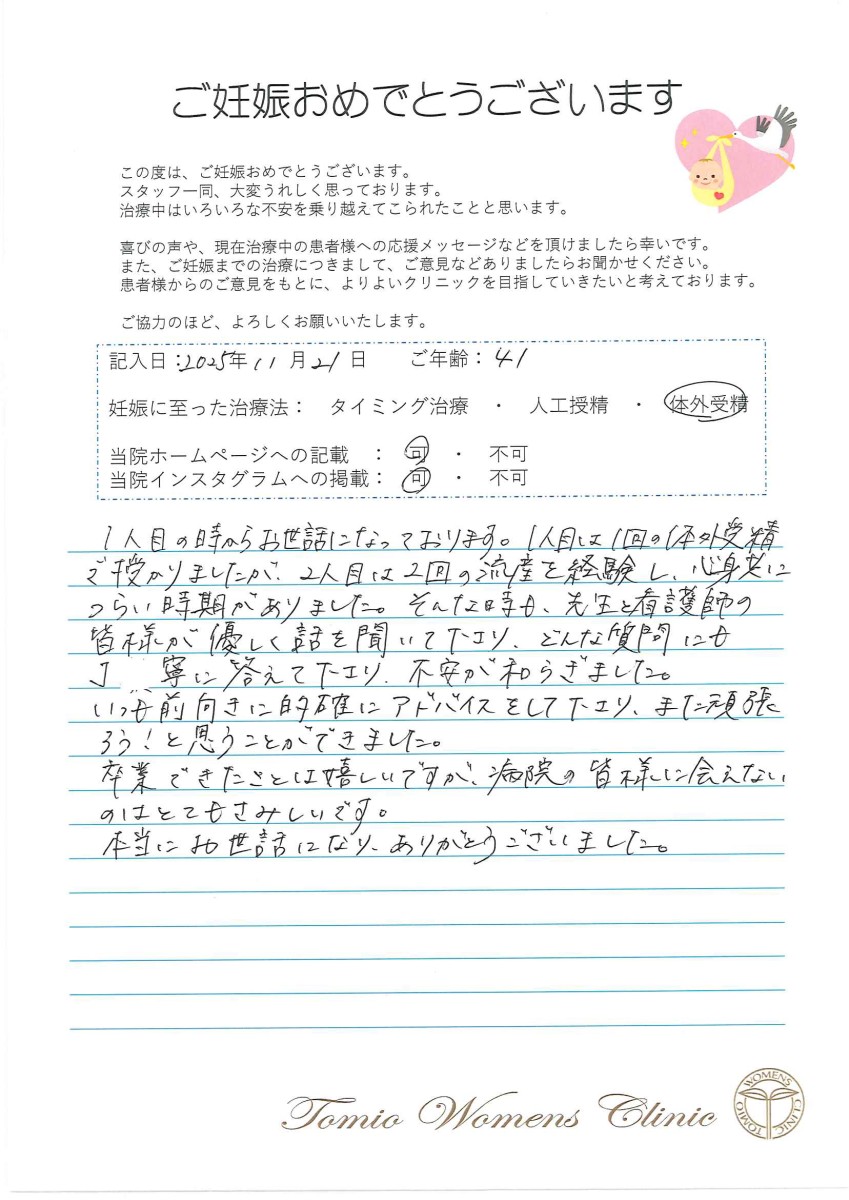 ご妊娠おめでとうございます
この度は、ご妊娠おめでとうございます。
スタッフ一同、大変うれしく思っております。
治療中はいろいろな不安を乗り越えてこられたことと思います。
喜びの声や、現在治療中の患者様への応援メッセージなどを頂けましたら幸いです。
また、ご妊娠までの治療につきまして、ご意見などありましたらお聞かせください。
患者様からのご意見をもとに、よりよいクリニックを目指していきたいと考えております。
ご協力のほど、よろしくお願いいたします。
記入日：2025年 11 月 21 日 ご年齢： 41
妊娠に至った治療法： タイミング治療 ・ 人工授精 ・ 体外受精
当院ホームページへの記載 ： 可 ・ 不可
当院インスタグラムへの掲載： 可 ・ 不可
1人目の時からお世話になっております。1人目は1回の体外受精
で授かりましたが、2人目は2回の流産を経験し、心身共に
つらい時期がありました。そんな時も、先生と看護師の
皆様が優しく話を聞いて下さり、どんな質問にも
丁寧に答えて下さり、不安が和らぎました。
いつも前向きに的確にアドバイスをして下さり、また頑張
ろう！と思うことができました。
卒業できたことは嬉しいですが、病院の皆様に会えない
のはとてもさみしいです。
本当にお世話になり、ありがとうございました。
Tomio Womens Clinic
WOMENS CLINIC TOMIO